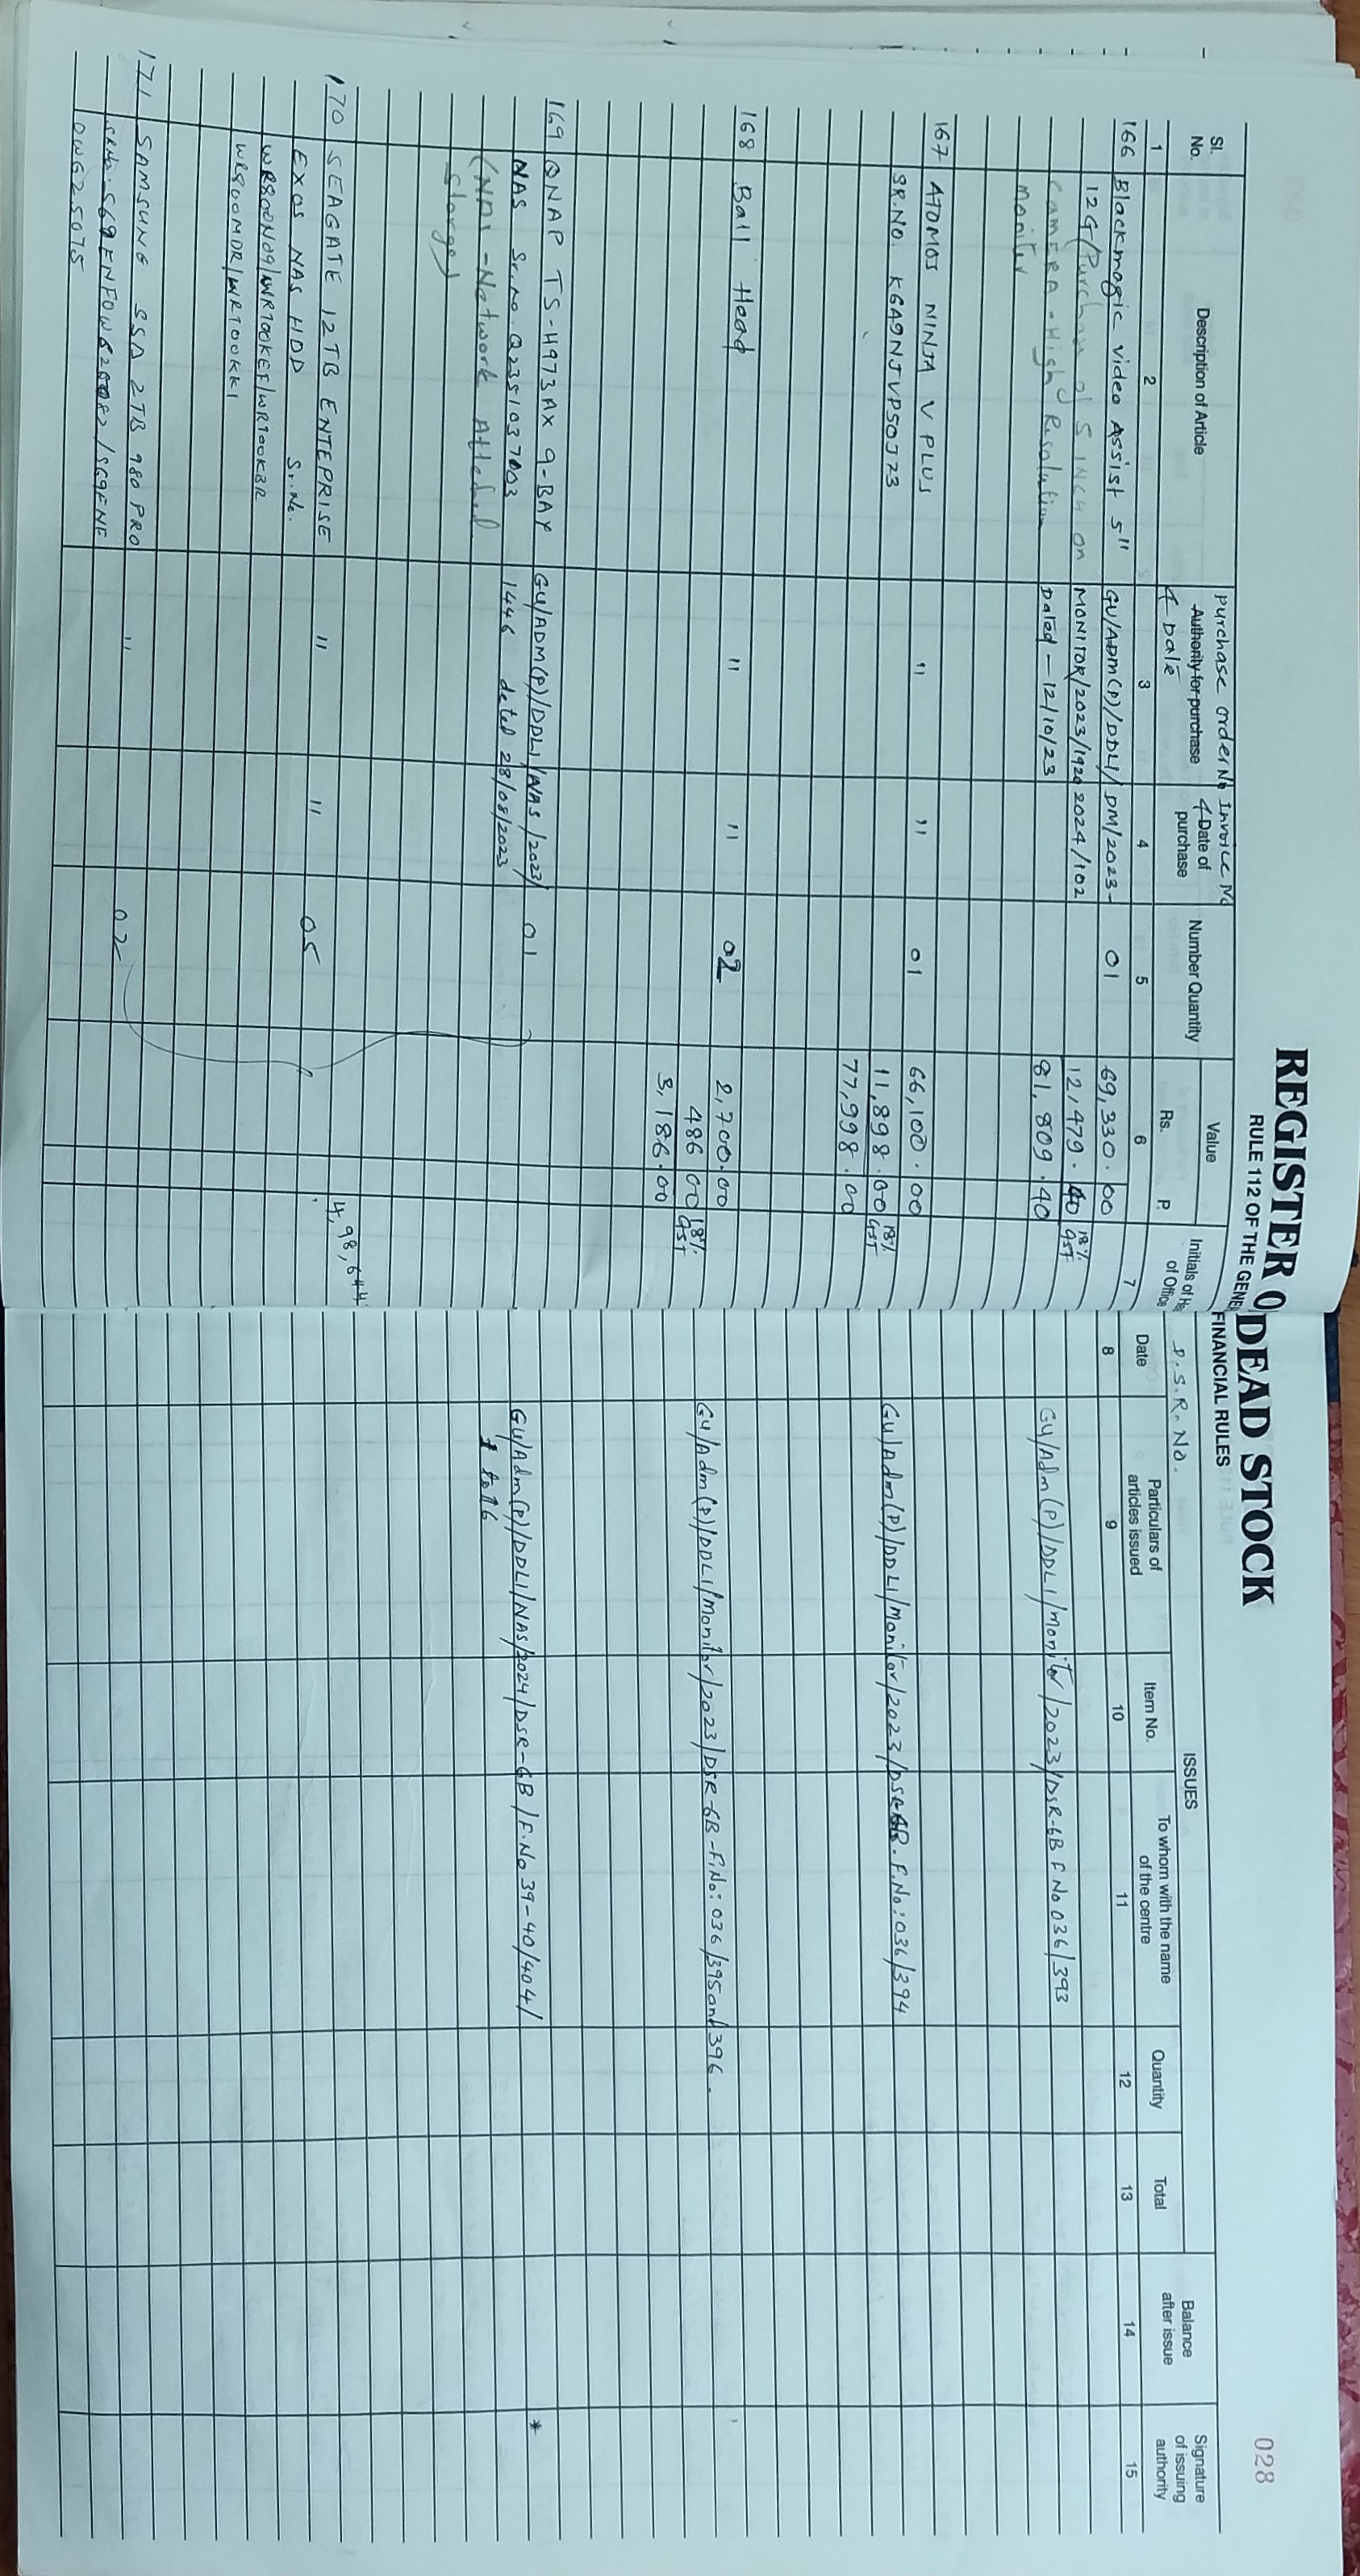 REGISTER O DEAD STOCK
RULE 112 OF THE GENE FINANCIAL RULES
028
Sl. No.
Description of Article
Purchase order No
Authority for purchase
& Date
Invoice No
& Date of purchase
Number Quantity
Value
Rs.
P.
Initials of He
of Office
D.S.R. No.
ISSUES
Date
Particulars of articles issued
Item No.
To whom with the name of the centre
Quantity
Total
Balance after issue
Signature of issuing authority
1 2 3 4 5 6 7 8 9 10 11 12 13 14 15
166 Blackmagic Video Assist 5" GU/ADM(P)/DDLI/ DM/2023- 01 69,330.00
12G (Purchase of 5 INCH on MONITOR/2023/1920 2024/102 12,479.40 18% GST
CAMERA - High Resolution Dated - 12/10/23 81,809.40 GU/Adm(P)/DDLI/Monitor/2023/DSR-6B F.No 036/393
Monitor
167 ATOMOS NINJA V PLUS " " 01 66,100.00
SR.NO. KGA9NJVPS0J23 11,898.00 18% GST GU/Adm(P)/DDLI/Monitor/2023/DSR-6B. F.No:036/394
77,998.00
168 Ball Head " " 02 2,700.00
486.00 18% GST GU/Adm(P)/DDLI/Monitor/2023/DSR-6B-F.No:036/395 and 396.
3,186.00
169 QNAP TS-H973AX 9-BAY GU/ADM(P)/DDLI/NAS/2023/ 01
NAS Sr.no. Q235I037003 1446 dated 28/08/2023 GU/Adm(P)/DDLI/NAS/2024/DSR-6B/F.No 39-40/404/
(NAS - Network Attached 1 to 16
Storage)
170 SEAGATE 12TB ENTEPRISE " " 05 4,98,644
EXOS NAS HDD Sr.No.
WR800N09/WR700KEF/WR700KBR
WR800MDR/WR700KK1
171 SAMSUNG SSD 2TB 980 PRO " 02
SR.No.
0W625075